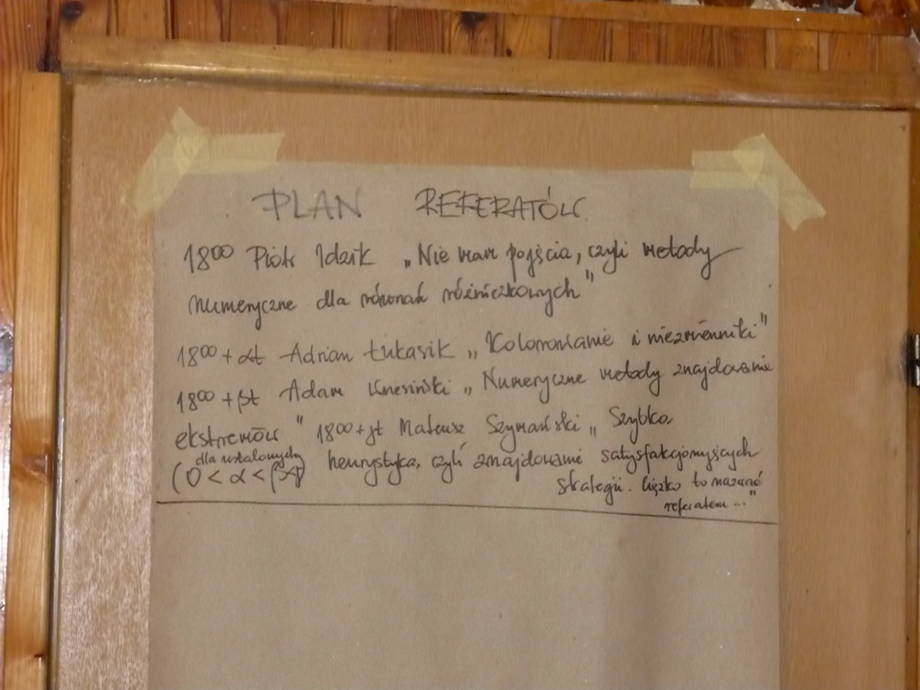 PLAN REFERATÓW
18⁰⁰ Piotr Idzik „Nie mam pojęcia, czyli metody
numeryczne dla równań różniczkowych”
18⁰⁰+αt Adrian Łukasik „Kolorowanie i niezmienniki”
18⁰⁰+βt Adam Knesiński „Numeryczne metody znajdowania
ekstremów” 18⁰⁰+γt Mateusz Szymański „Szybka
dla ustalonych
(0<α<β<γ) heurystyka, czyli znajdowanie satysfakcjonujących
strategii. Ciężko to nazwać
referatem...”